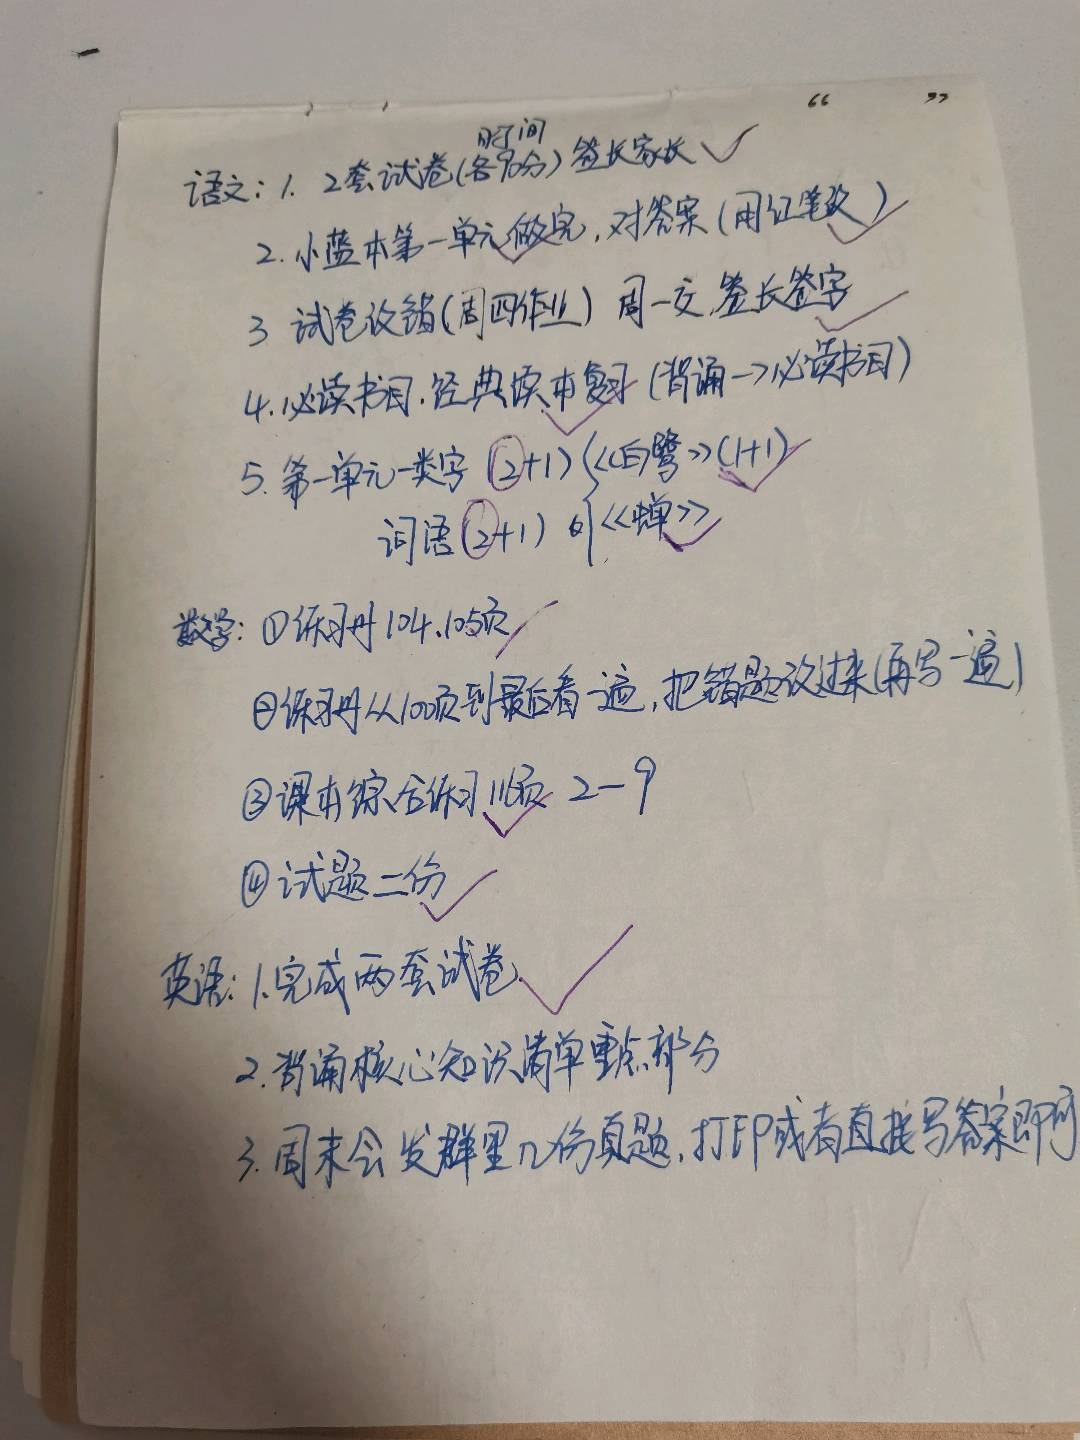 “ ”
时间
语文:1. 2套试卷(各90分)签长家长
2. 小蓝本第一单元做完,对答案(用红笔改)
3 试卷改错(周四作业) 周一交,签长签字
4.必读书目.经典读本复习(背诵→必读书目)
5.第一单元一类字(2+1)《白鹭》(1+1)
词语(2+1) 的《蝉》
数学:①练习册104.105页
②练习册从100页到最后看一遍,把错题改过来(再写一遍)
③课本综合练习116页 2-9
④试题二份
英语:1.完成两套试卷.
2.背诵核心知识清单重点部分
3.周末会发群里几份真题,打印或者直接写答案即可